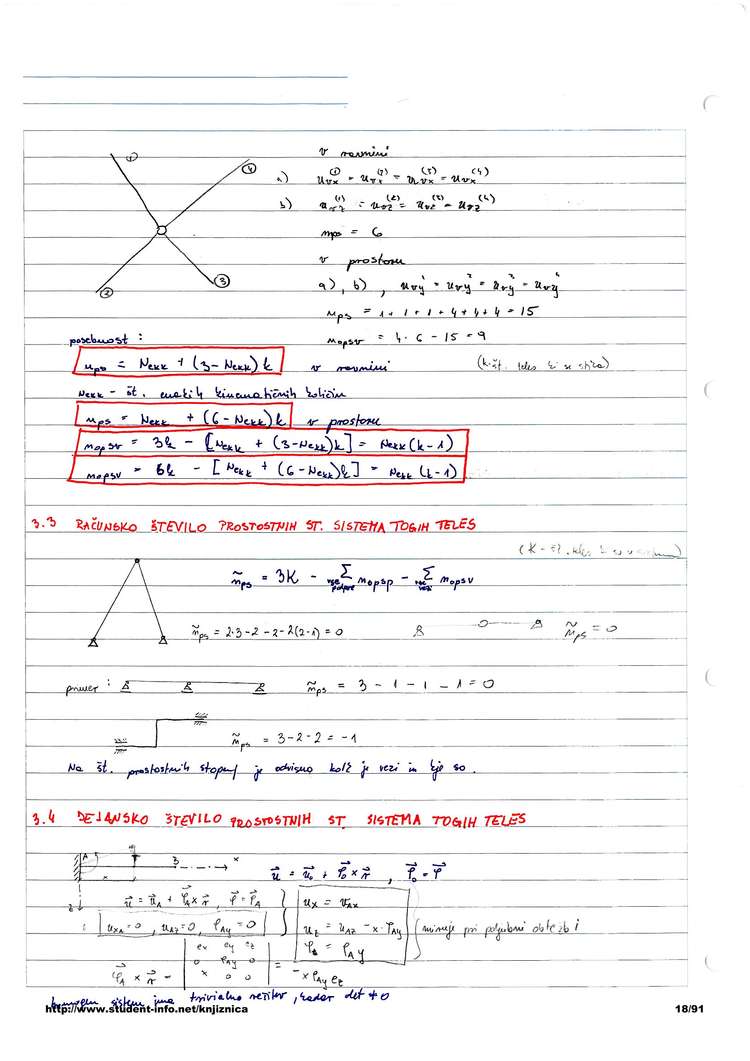 v ravnini
a) u_vx^(1) = u_vx^(2) = u_vx^(3) = u_vx^(4)
b) u_vz^(1) = u_vz^(2) = u_vz^(3) = u_vz^(4)
n_ps = 6
v prostoru
a), b), u_vy^1 = u_vy^2 = u_vy^3 = u_vy^4
n_ps = 1+1+1+4+4+4 = 15
n_opsv = 4·6 - 15 = 9
① ④ ② ③
posebnost:
n_ps = N_ekk + (3 - N_ekk)k v ravnini (k-št. teles ki se stika)
N_ekk - št. enakih kinematičnih količin
n_ps = N_ekk + (6 - N_ekk)k v prostoru
n_opsv = 3k - [N_ekk + (3 - N_ekk)k] = N_ekk(k-1)
n_opsv = 6k - [N_ekk + (6 - N_ekk)k] = N_ekk(k-1)
3.3 RAČUNSKO ŠTEVILO PROSTOSTNIH ST. SISTEMA TOGIH TELES
(K - št. teles
ñ_ps = 3K - Σ n_opsp - Σ n_opsv
vse podpore vse vezi
ñ_ps = 2·3-2-2-2(2-1) = 0 ñ_ps = 0
primer: ñ_ps = 3 - 1 - 1 - 1 = 0
ñ_ps = 3-2-2 = -1
Na št. prostostnih stopenj je odvisno kolk je vezi in kje so.
3.4 DEJANSKO ŠTEVILO PROSTOSTNIH ST. SISTEMA TOGIH TELES
A B x
x z
u⃗ = u⃗_0 + φ⃗_0 × r⃗, φ⃗_0 = φ⃗
u⃗ = u⃗_A + φ⃗_A × r⃗, φ⃗ = φ⃗_A
u_xA = 0, u_Az = 0, φ_Ay = 0
u_x = u_Ax
u_z = u_Az - x·φ_Ay
φ_B = φ_Ay
miruje pri poljubni obtežbi
φ⃗_A × r⃗ = | e_x e_y e_z | = -x φ_Ay e_z
0 φ_Ay 0
x 0 0
homogen sistem ima trivialno rešitev, kadar det ≠ 0
http://www.student-info.net/knjiznica 18/91